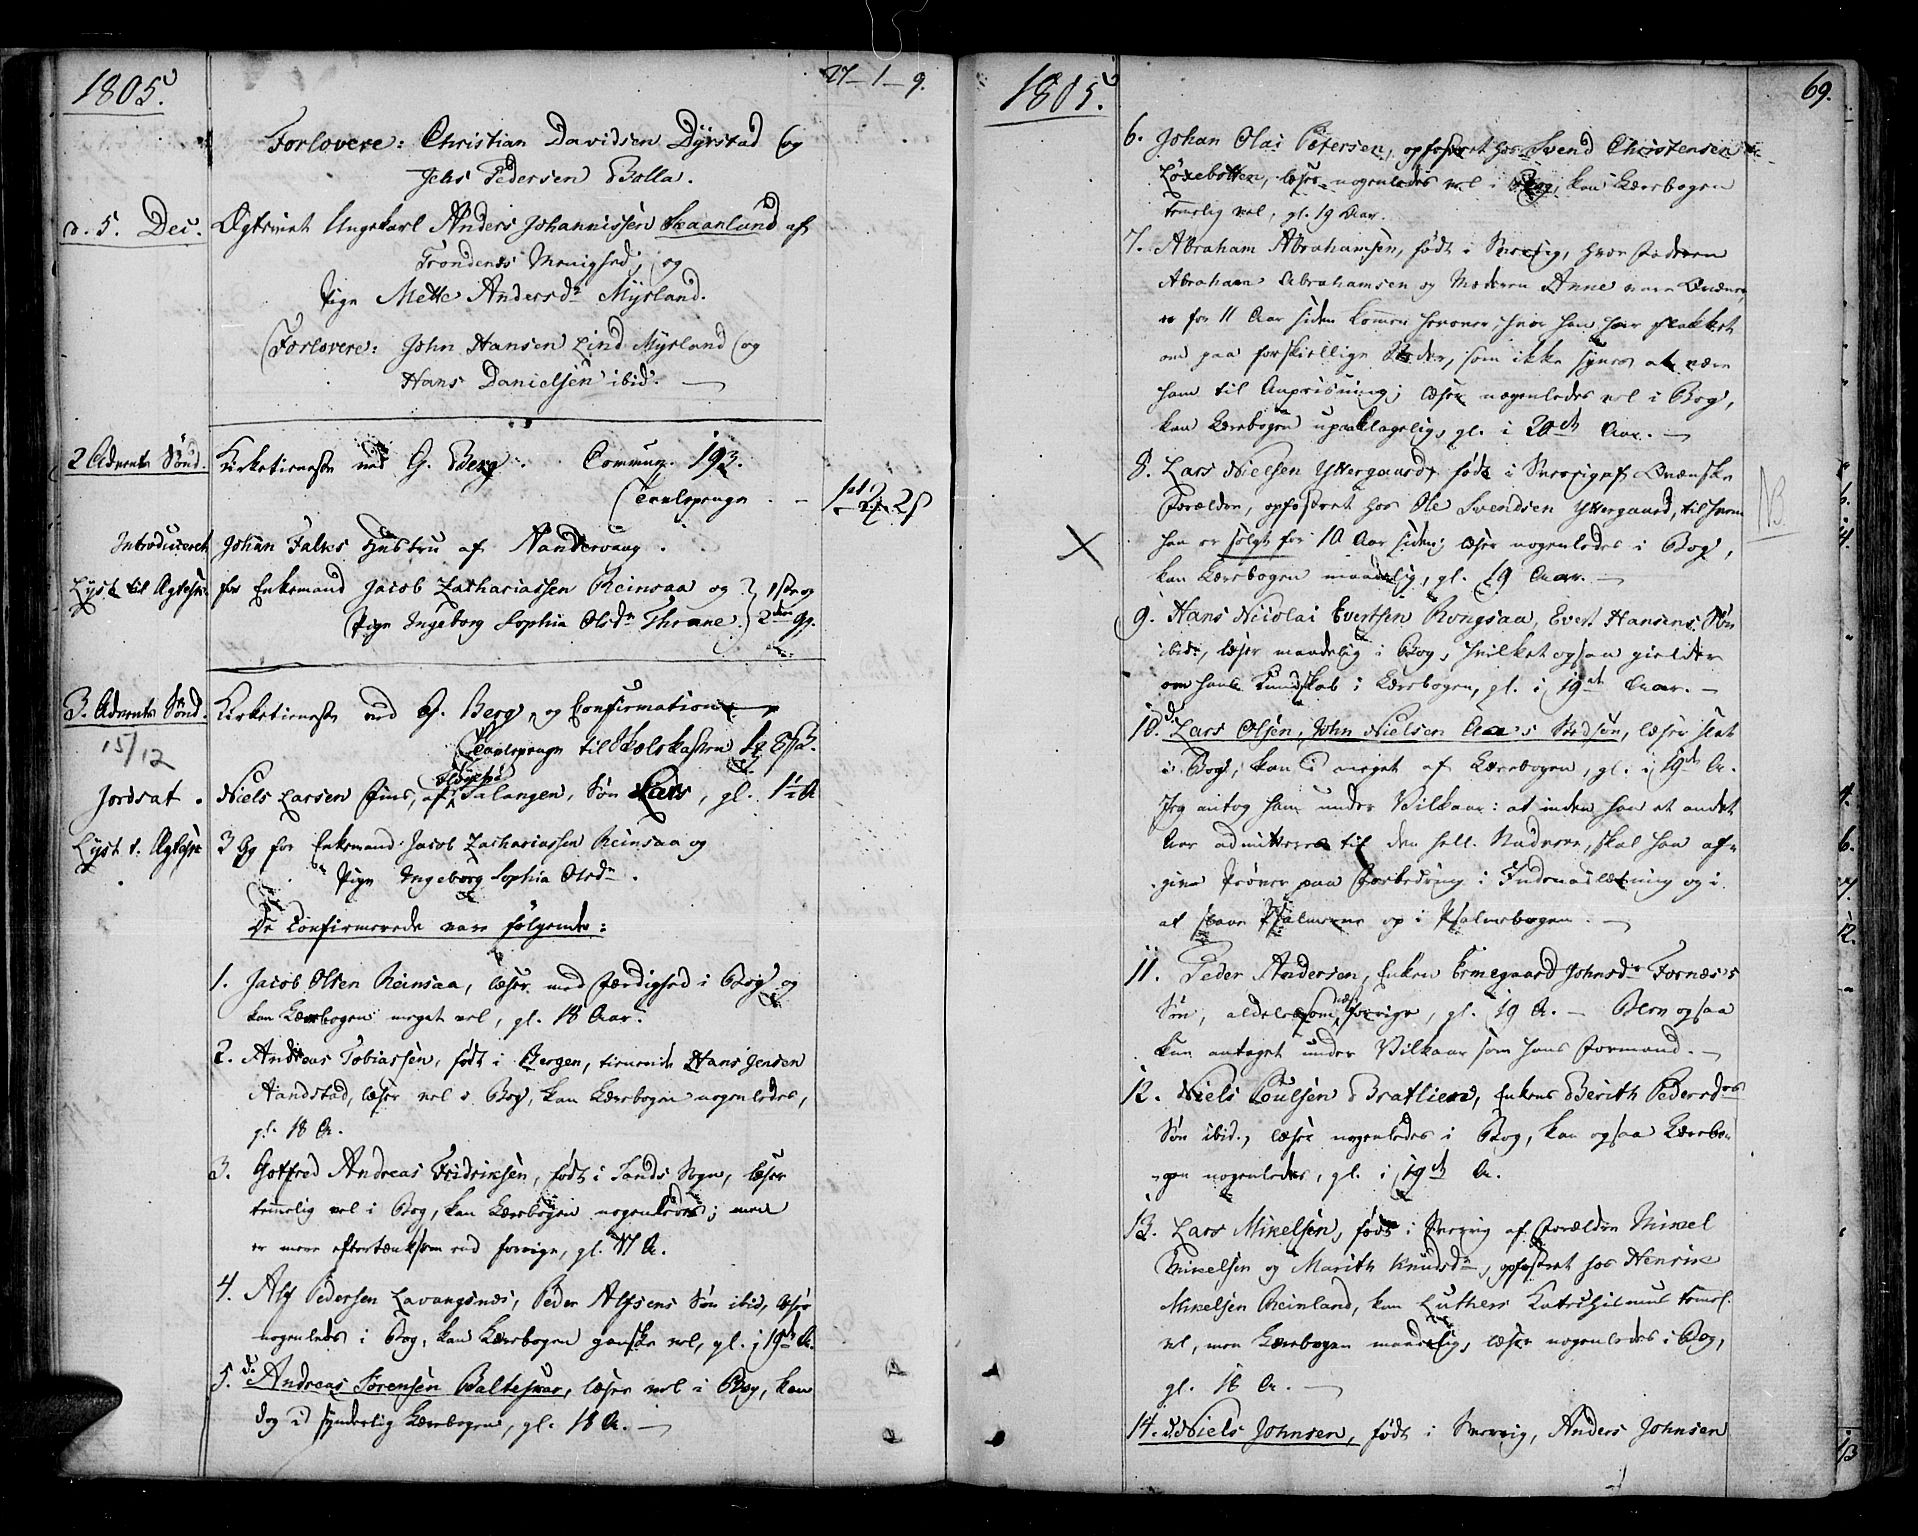 1805.
27 — 1 — 9.
Forlovere: Christian Davidsen Dyrstad og
Jens Pedersen Bolla.
d. 5. Dec. Ægteviet Ungekarl Anders Johannissen Skaanlund af
Trondenæs Menighed, og
Pige Mette Andersdr Myrland.
Forlovere: John Hansen Lind Myrland og
Hans Danielsen ibid. —
2 Advents Sønd. Kirketieneste ved G. Berg. Commun. 193.
Tavlepenge . —
Introduceret Johan Falkes Hustru af
Lyst til Ægtesk. for Enkemand Jacob Zachariassen Reinsaa og } 1ste og
Pige Ingeborg Sophia Olsdr Thrane. } 2den Gg.
3. Advents Sønd. Kirketieneste ved G. Berg, og Confirmation
15/12
Tavlepenge til Skolekassen
Jordsat. Niels Larsen Fins, af Salangen, Søn Lars, gl. 1½ A
Lyst t. Ægtesk. 3 Gg for Enkemand Jacob Zachariassen Reinsaa og
Pige Ingeborg Sophia Olsdr.
De Confirmerede vare følgende:
1. Jacob Olsen Reinsaa, læser med Færdighed i Bog og
kan Lærebogen meget vel, gl. 18 Aar.
2. Andreas Tobiassen, født i Bergen, tienende Hans Jensen
Aandstad, læser vel i Bog, kan Lærebogen nogenledes,
gl. 18 A.
3. Gotfred Andreas Fridriksen, født i Sands Sogn, læser
temmelig vel i Bog, kan Lærebogen nogenledes; men
er mere eftertænksom end forrige, gl. 17 A.
4. Alf Pedersen Lavangsnæs, Peder Alfsens Søn ibid, læser
nogenleds i Bog, kan Lærebogen ganske vel, gl. i 19de A.
5. Andreas Sørensen Baltesvar, læser vel i Bog, kan
dog ei synderlig Lærebogen, gl. 18 A. —
1805.
69.
6. Johan Olai Petersen, opfostret hos Svend Christensen
læser nogenledes vel i Bog, kan Lærebogen
temelig vel, gl. 19 Aar.
7. Abraham Abrahamsen, født i Sverrig, hvor Faderen
Abraham Abrahamsen og Moderen Anne vare Qvæner,
er for 11 Aar siden kommen herover, hvor han har flakket
om paa forskiellige Steder, som ikke synes at være
ham til Anprisning; læser nogenledes vel i Bog,
kan Lærebogen upaaklagelig, gl. i 20de Aar. —
8. Lars Nielsen Yttergaard, født i Sverrig af Qvænske
Forældre, opfostret hos Ole Svendsen Yttergaard, til hvem
NB
han er solgt for 10 Aar siden; læser nogenledes i Bog,
kan Lærebogen maadelig, gl. 19 Aar. —
9. Hans Nicolai Evertsen Rongsaa, Evert Hansens Søn
ibid, læser maadelig i Bog, hvilket ogsaa gielder
om hans Kundskab i Lærebogen, gl. i 19de Aar. —
10. Lars Olsen, John Nielsen Aaes Stedsøn, læser slet
i Bog, kan ei meget af Lærebogen, gl. i 19de A.
Jeg antog ham under Vilkaar: at inden han et andet
Aar admitteres til den hell. Nadvere, skal han af-
give Prøver paa Forbedring i Indenadslæsning og i
at slaae Psalmerne op i Psalmebogen. —
11. Peder Andersen, Enken Ermegaard Johnsdr Fornæs's
Søn, aldeles som næst forrige, gl. 19 A. — Blev ogsaa
kun antaget under Vilkaar som hans Formand. —
12. Niels Poulsen Bratlien, Enkens Berith Pedersdrs
Søn ibid., læser nogenledes i Bog, kan ogsaa Lærebo-
gen nogenledes, gl. i 19de A.
13. Lars Mikelsen, født i Sverrig af Forældre Mikel
Mikelsen og Marith Knudsdr, opfostret hos Henrik
Mikelsen Reinland, kan Luthers Katechismus temel.
vel, men Lærebogen maadelig, læser nogenledes i Bog,
gl. 18 A. —
14. Niels Johnsen, født i Sverrig, Anders Johnsen